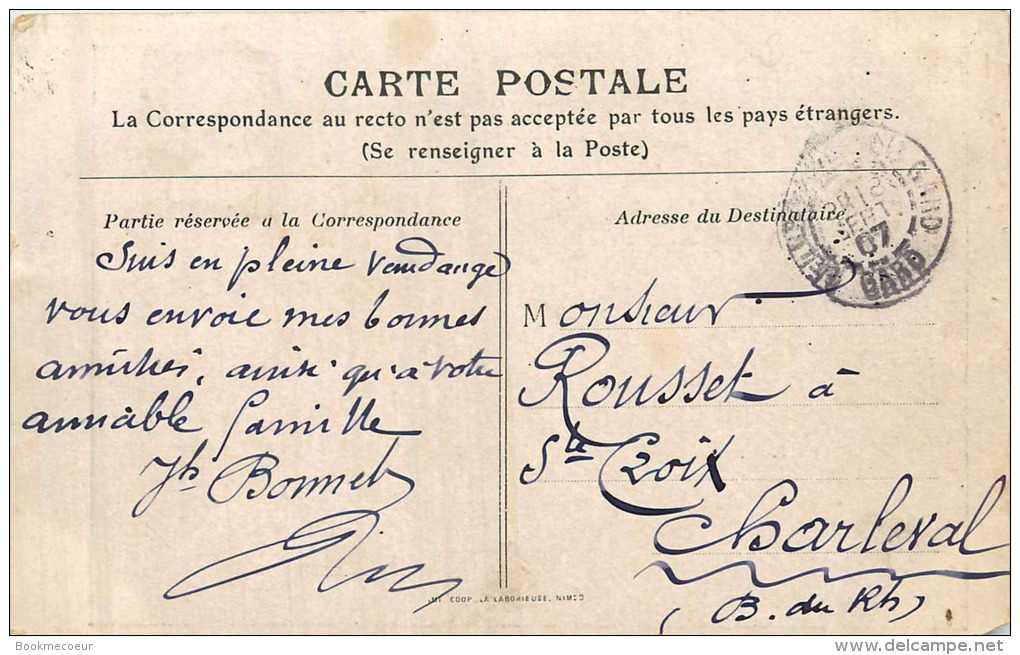 CARTE POSTALE
La Correspondance au recto n'est pas acceptée par tous les pays étrangers.
(Se renseigner à la Poste)
Partie réservée a la Correspondance
Suis en pleine vendange
vous envoie mes bonnes
amitiés, ainsi qu'à votre
aimable famille
Jh Bonnet
Adresse du Destinataire
Monsieur
Rousset à
Ste Croix
Charleval
(B. du Rh)
DU GARD
07
GARD
IMP. COOP. LA LABORIEUSE, NIMES
Bookmecoeur
delcampe.net